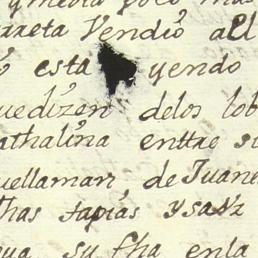 y media poco mas
arreta Vendió al
esta yendo
uedizen delos lob
athalina enttre si
uellaman de Juane
thas tapias ysanz
su fha enla